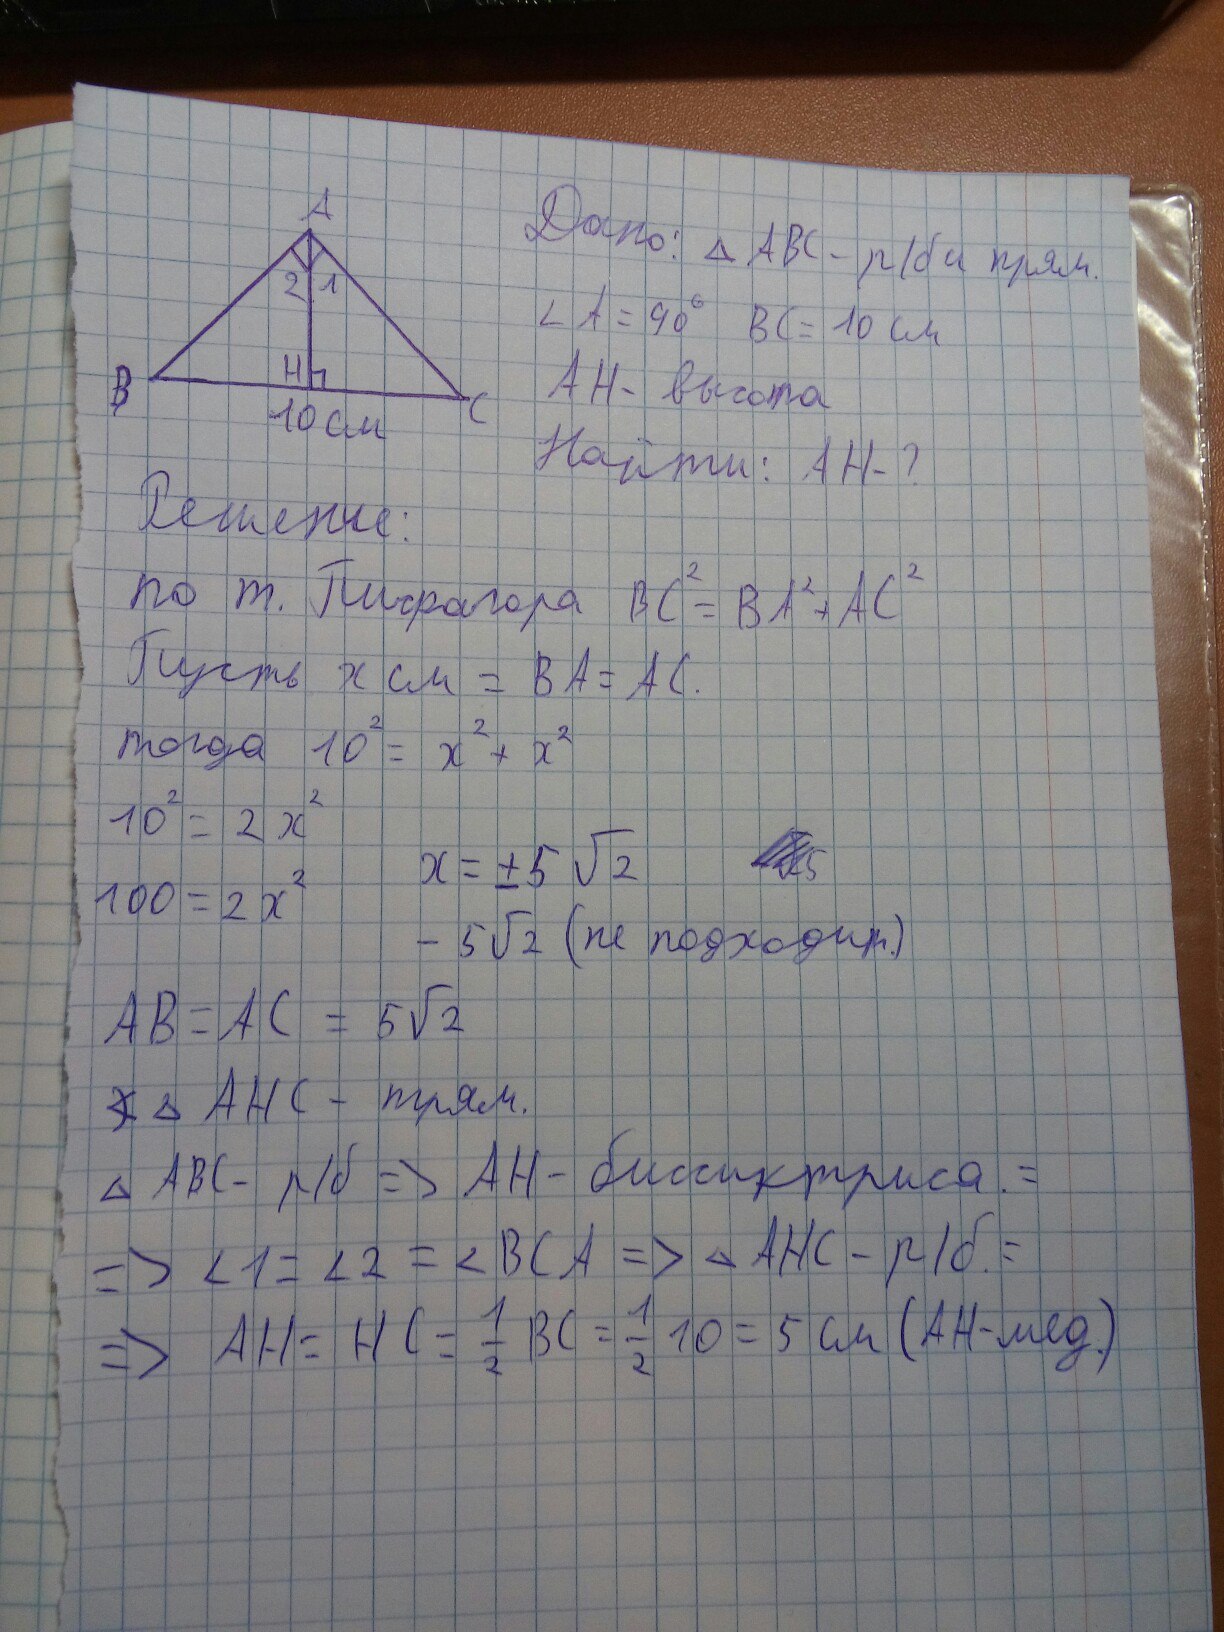 A
2 1
H
B
C
10 см
Дано: △ ABC - р/б и прям.
∠A = 90° BC = 10 см
AH - высота
Найти: AH - ?
Решение:
по т. Пифагора BC² = BA² + AC²
Пусть x см = BA = AC.
тогда 10² = x² + x²
10² = 2x²
100 = 2x²
x = ±5√2
- 5√2 (не подходит.)
AB = AC = 5√2
△ AHC - прям.
△ ABC - р/б => AH - биссиктриса. =
=> ∠1 = ∠2 = ∠BCA => △ AHC - р/б. =
=> AH = HC = 1/2 BC = 1/2 10 = 5 см (AH - мед.)